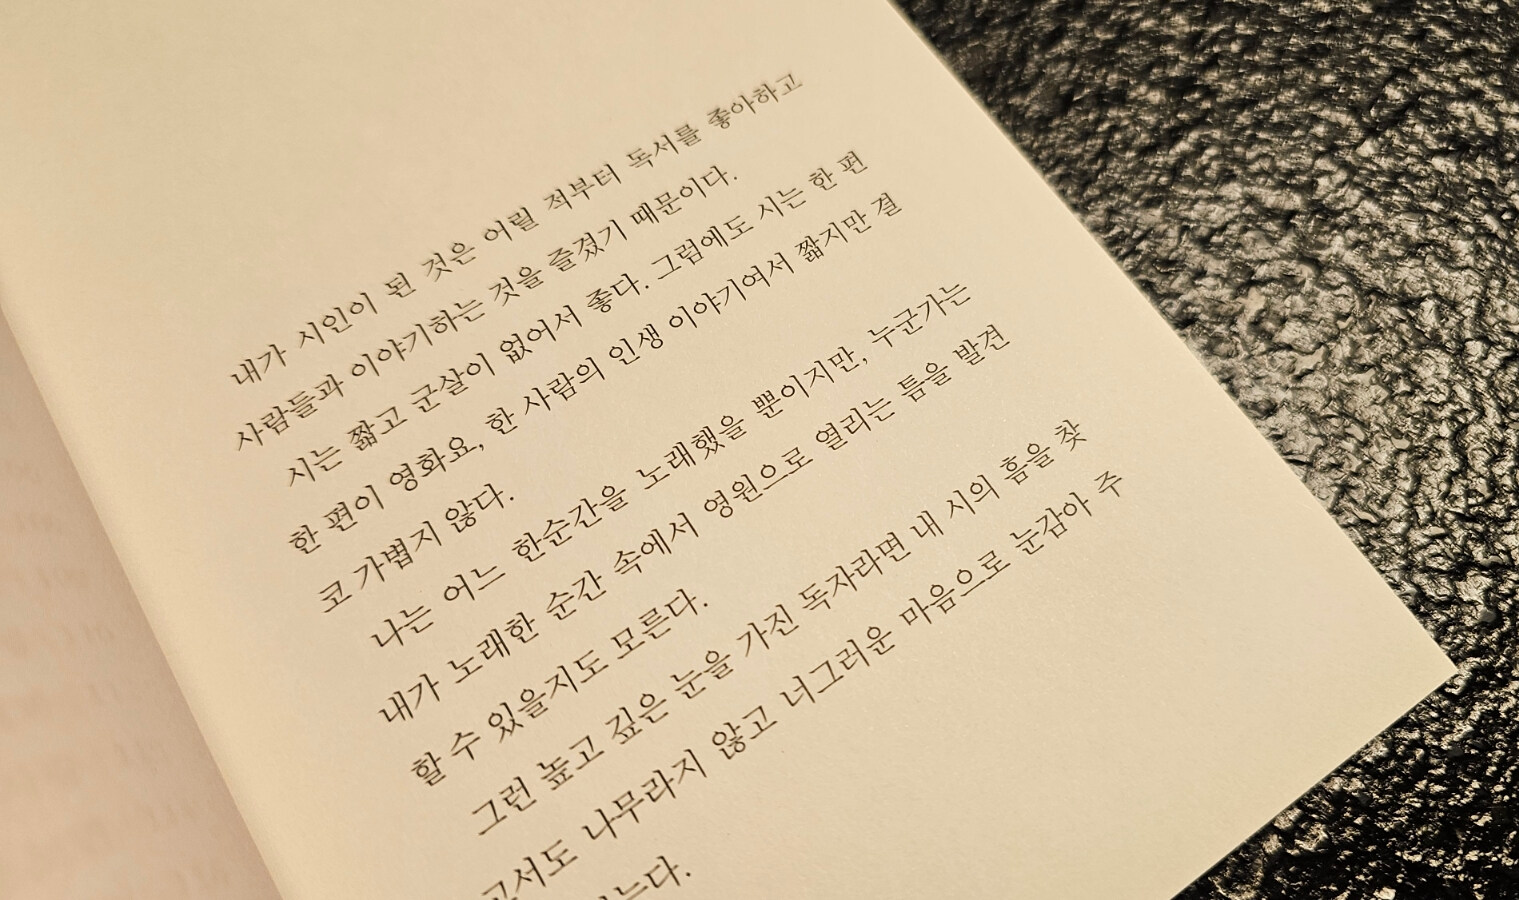 내가 시인이 된 것은 어릴 적부터 독서를 좋아하고
사람들과 이야기하는 것을 즐겼기 때문이다.
시는 짧고 군살이 없어서 좋다. 그럼에도 시는 한 편
한 편이 영화요, 한 사람의 인생 이야기여서 짧지만 결
코 가볍지 않다.
나는 어느 한순간을 노래했을 뿐이지만, 누군가는
내가 노래한 순간 속에서 영원으로 열리는 틈을 발견
할 수 있을지도 모른다.
그런 높고 깊은 눈을 가진 독자라면 내 시의 흠을 찾
고서도 나무라지 않고 너그러운 마음으로 눈감아 주